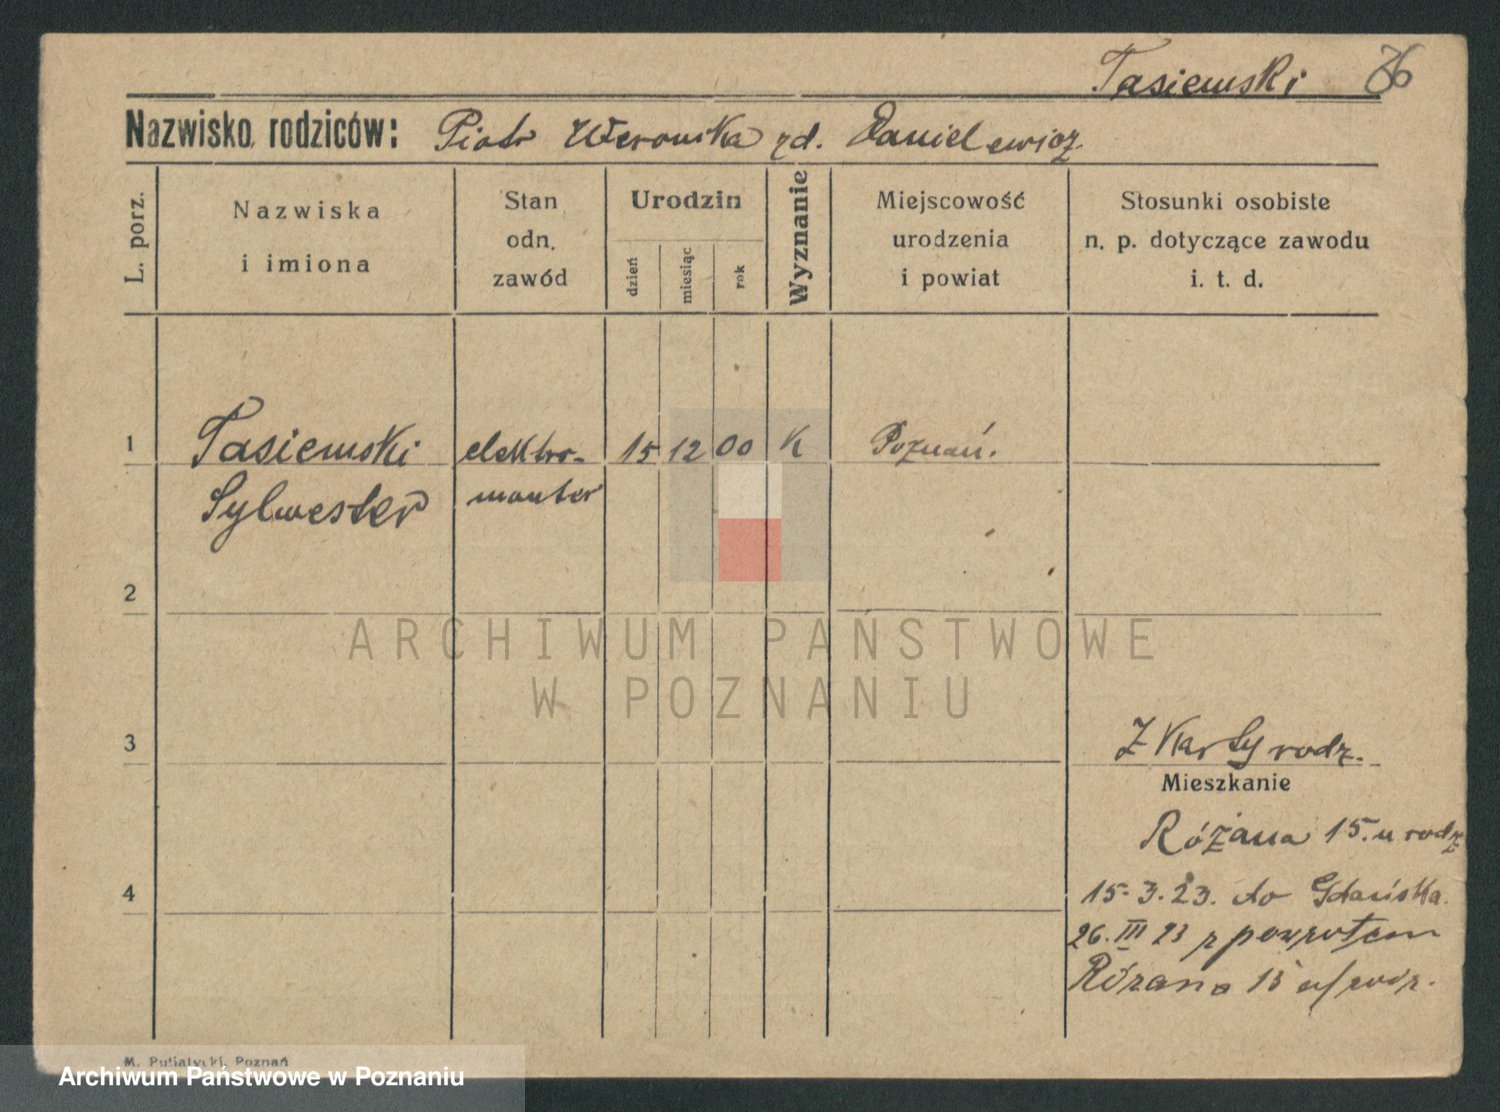 Tasiemski 86
Nazwisko rodziców: Piotr Weronika zd. Danielewicz
L. porz.
Nazwiska
i imiona
Stan
odn.
zawód
Urodzin
dzień
miesiąc
rok
Wyznanie
Miejscowość
urodzenia
i powiat
Stosunki osobiste
n. p. dotyczące zawodu
i. t. d.
1 Tasiemski elektro- 15 12 00 K Poznań.
Sylwester monter
2
ARCHIWUM PAŃSTWOWE
W POZNANIU
3 Z Karty rodz.
Mieszkanie
Różana 15. u rodz
4 15.3.23. do Gdańska.
26. III 23 z powrotem
Różana 15 u/rodz.
M. Putiatycki, Poznań
Archiwum Państwowe w Poznaniu